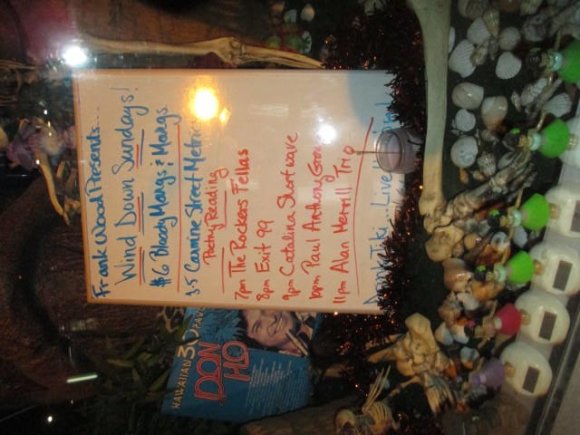 Frank Wood Presents...
Wind Down Sundays!
$6 Bloody Marys & Margs
3-5 Carmine Street Metrics
Poetry Reading
7pm The Rockers Fellas
8pm Exit 99
9pm Catalina Shortwave
10pm Paul Anthony Group
11pm Alan Merrill Trio
Tiki... Live
HAWAII'S
DON
HO